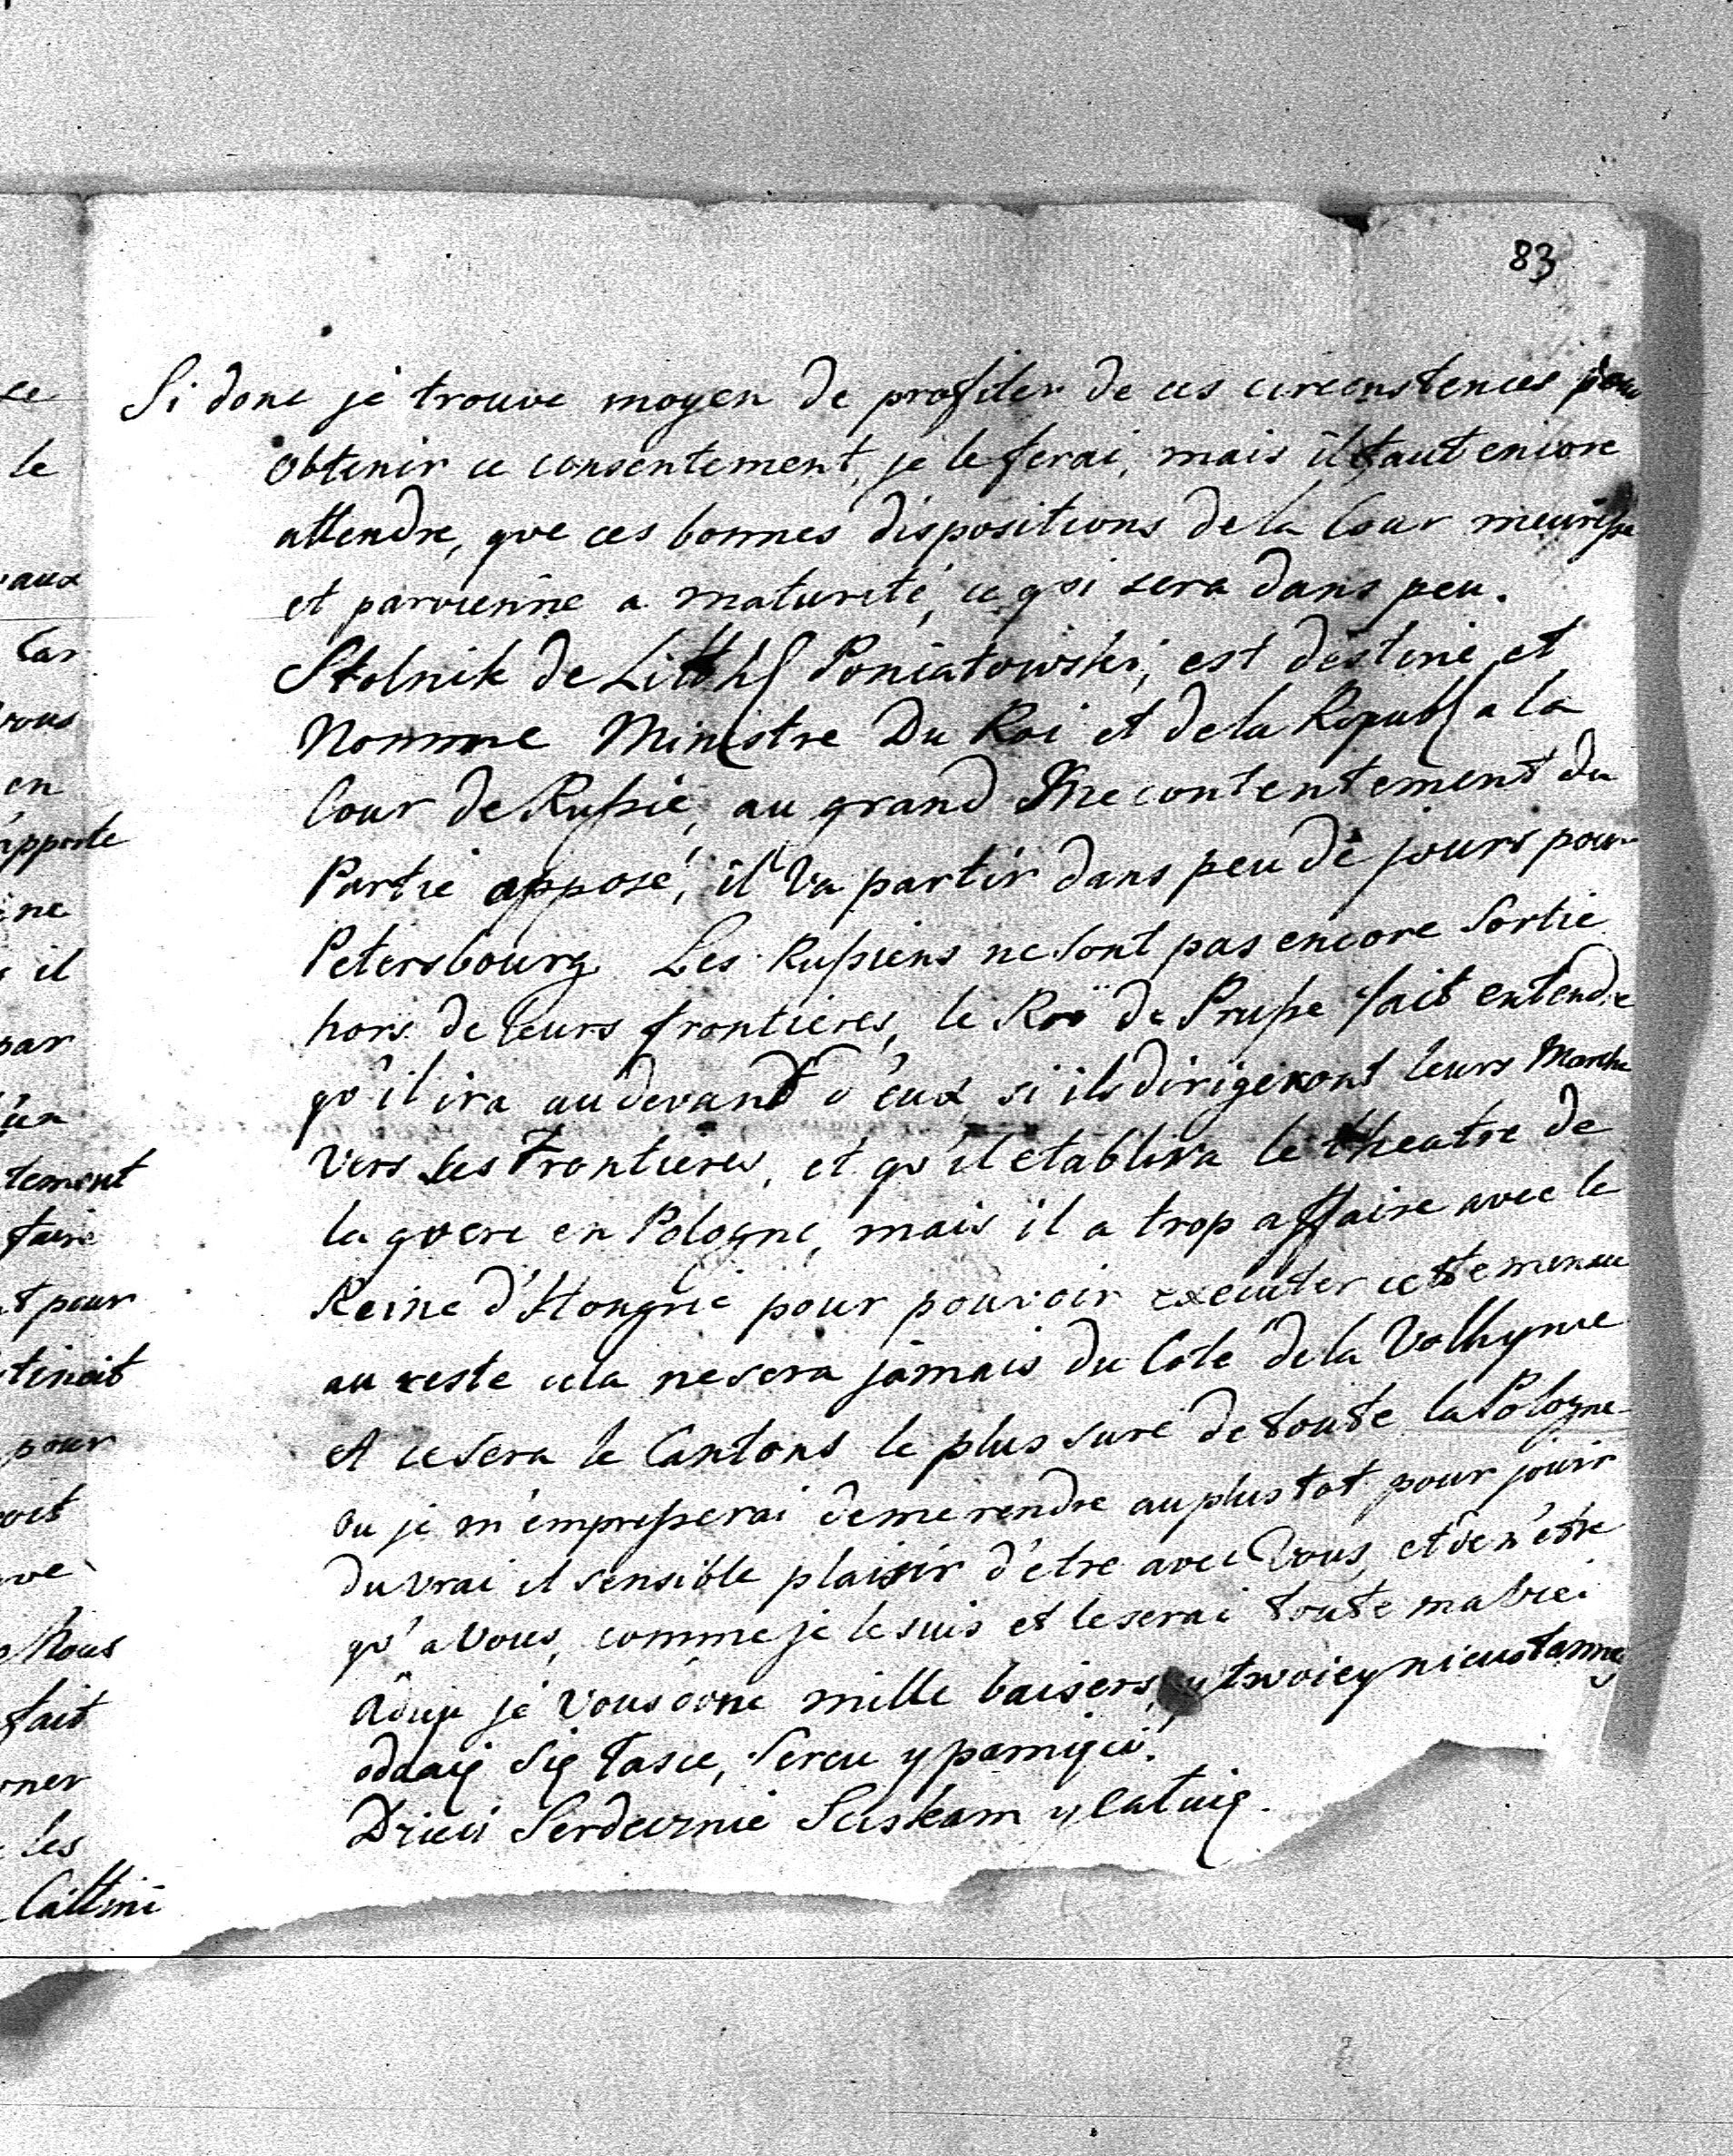 83
Si donc je trouve moyen de profiter de ces circonstences pour
obtenir ce consentement, je le ferai, mais il faut encore
attendre, que ces bonnes dispositions de la Cour meurisse
et parvienne a maturité, ce qui sera dans peu.
Stolnik de Litth Poniatowski, est destiné et
Nomme Ministre Du Roi et de la Republ a la
Cour de Russie, au grand Mecontentement du
Partie opposé, il Va partir dans peu de jours pour
Petersbourg. Les Russiens ne sont pas encore Sortie
hors de leurs frontieres, le Roi de Prusse fait entendre
qu'il ira au devand d'eux, si ils dirigeront leurs Marche
Vers Ses Frontieres, et qu'il etablira le theatre de
la guere en Pologne, mais il a trop affaire avec le
Reine d'Hongrie pour pouvoir executer cette menace
au reste cela ne sera jamais du Coté de la Volhynie
et ce sera le Cantons le plus sure de toute la Pologne
Ou je m'empresserai de me rendre au plus tot pour jouir
du vrai et sensible plaisir d'etre avec Vous, et de n'etre
qu'a Vous, comme je le suis et le serai toute ma vie.
Adieu je Vous done mille baisers, y twoiey nieustanney
oddaię Się łasce, Sercu y pamięci.
Dzieci Serdecznie Sciskam y Całuię.
ce
le
aux
Car
vous
en
apporte
ine
il
par
tement
faire
pour
tinoit
pour
Nous
fait
les